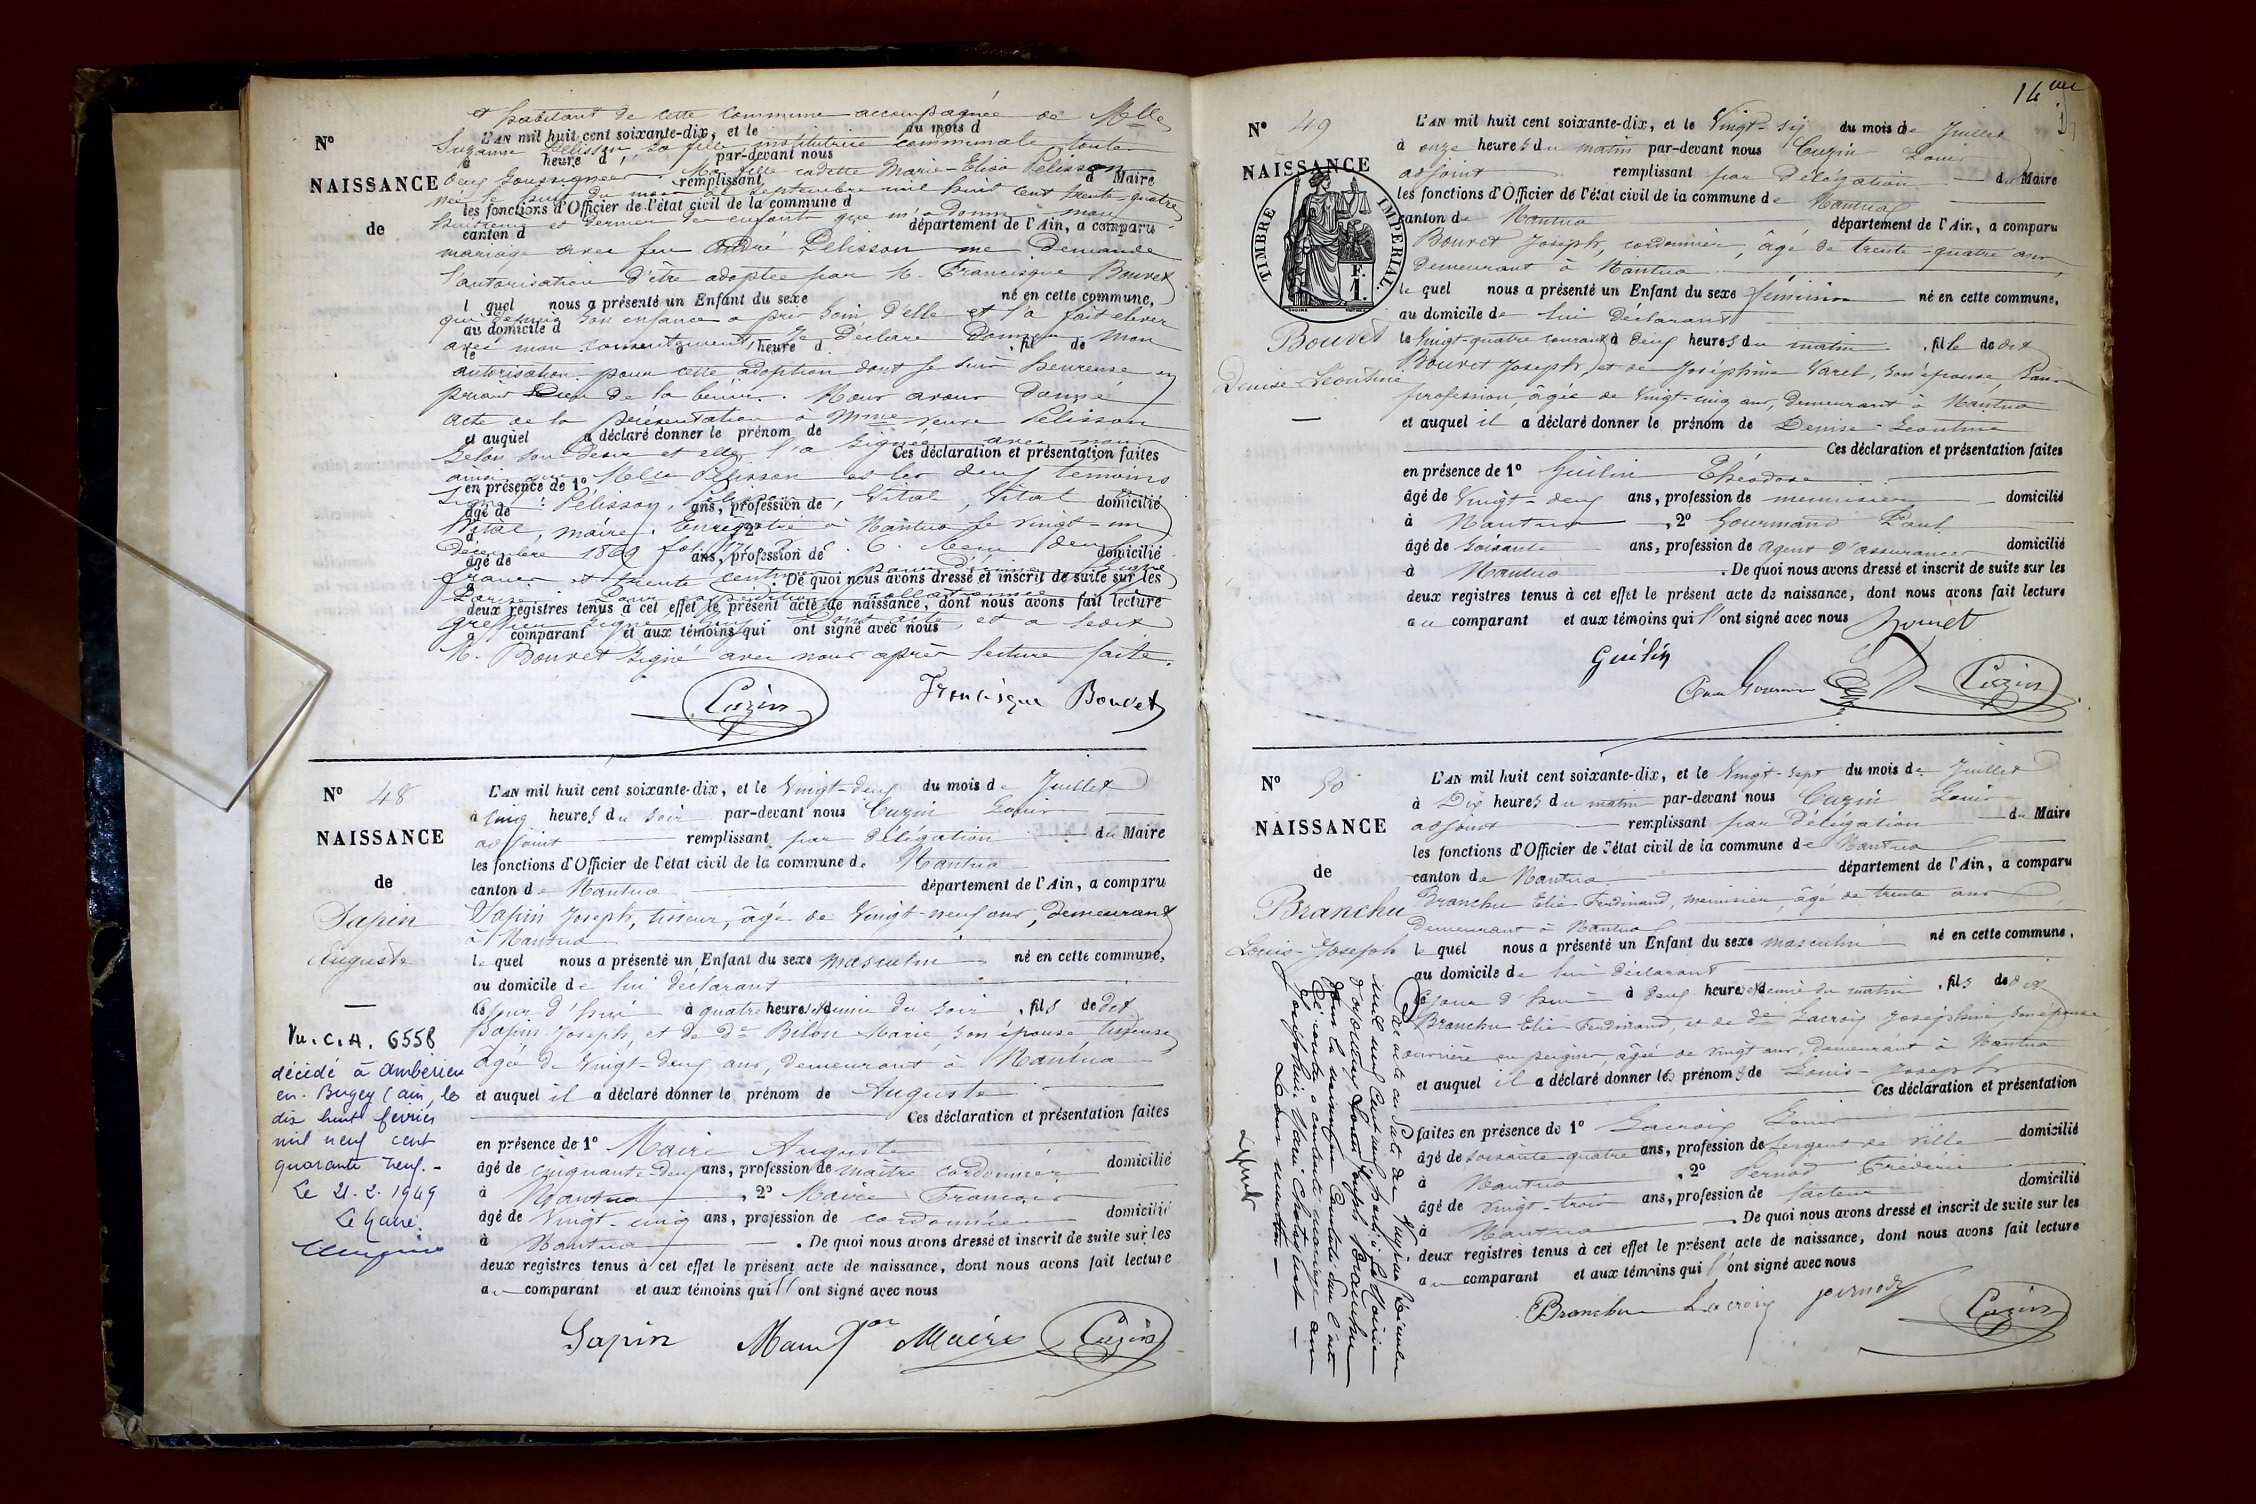 et habitant de cette commune accompagnée de Melle
No L'AN mil huit cent soixante-dix, et le du mois d
Suzanne Pelisson sa fille institutrice communale toutes
à heure d par-devant nous
NAISSANCE deux soussignées. Ma fille cadette Marie-Elisa Pelisson
remplissant d Maire
née le huit du mois de Septembre mil huit cent trente quatre
les fonctions d'Officier de l'état civil de la commune d
de huitième et dernier des enfants que m'a donné mon
canton d département de l'Ain, a comparu
mariage avec feu André Pelisson me demande
l'autorisation d'être adoptée par M. Francisque Bouvet
l quel nous a présenté un Enfant du sexe né en cette commune,
qui depuis son enfance a pris soin d'elle et l'a fait élever
au domicile d
avec mon consentement, Je déclare donner mon
le à heure d , fil de
autorisation pour cette adoption dont je suis heureuse en
priant Dieu de la bénir. Nous avons donné
acte de la présentation à Mme veuve Pelisson
et auquel a déclaré donner le prénom de
selon son désir et elle l'a signée avec nous
Ces déclaration et présentation faites
ainsi que Melle Pelisson et les deux témoins
en présence de 1o
Signé : Pelisson, Pelisson, Vital, Vital
âgé de ans, profession de domicilié
maire. Enregistré à Nantua le vingt-un
à , 2o
décembre 1869 folio
âgé de ans, profession de domicilié
francs et trente centimes
à . De quoi nous avons dressé et inscrit de suite sur les
Pour expédition collationnée
deux registres tenus à cet effet le présent acte de naissance, dont nous avons fait lecture
greffier signé Dont acte, et a ledit
a comparant et aux témoins qui ont signé avec nous
M. Bouvet signé avec nous après lecture faite.
Cuzin Francisque Bouvet
No 48 L'AN mil huit cent soixante-dix, et le Vingt-deux du mois de Juillet
à cinq heures du soir par-devant nous Cuzin Louis
NAISSANCE adjoint remplissant par délégation du Maire
les fonctions d'Officier de l'état civil de la commune de Nantua
de canton de Nantua département de l'Ain, a comparu
Sapin Sapin Joseph, tisseur, âgé de Vingt-neuf ans, demeurant
à Nantua
Auguste le quel nous a présenté un Enfant du sexe masculin né en cette commune,
au domicile de lui déclarant
le jour d'hui à quatre heures et demie du soir , fils de dit
Sapin Joseph, et de De Belon Marie, son épouse, tisseuse
âgée de Vingt-deux ans, demeurant à Nantua
et auquel il a déclaré donner le prénom de Auguste
Ces déclaration et présentation faites
en présence de 1o Maire Auguste
âgé de cinquante-deux ans, profession de maître cordonnier domicilié
à Nantua , 2o Maire François
âgé de Vingt-cinq ans, profession de cordonnier domicilié
à Nantua . De quoi nous avons dressé et inscrit de suite sur les
deux registres tenus à cet effet le présent acte de naissance, dont nous avons fait lecture
au comparant et aux témoins qui l'ont signé avec nous
Sapin Maire Cuzin
Vu. C.A. 6558
décédé à Ambérieu
en-Bugey (ain, le
dix huit février
mil neuf cent
quarante neuf.-
Le 21.2.1949
Le Maire.
14
No 49 L'AN mil huit cent soixante-dix, et le Vingt-six du mois de Juillet
à onze heures du matin par-devant nous Cuzin Louis
NAISSANCE adjoint remplissant par délégation du Maire
les fonctions d'Officier de l'état civil de la commune de Nantua
canton de Nantua département de l'Ain, a comparu
TIMBRE IMPÉRIAL.
F. 1.
Bouvet Joseph, cordonnier, âgé de trente-quatre ans
demeurant à Nantua
le quel nous a présenté un Enfant du sexe féminin né en cette commune,
au domicile de lui déclarant
Bouvet le Vingt-quatre courant à deux heures du matin , fille de dit
Bouvet Joseph, et de Joséphine Varel, son épouse, sans
Denise-Léontine profession, âgée de Vingt-cinq ans, demeurant à Nantua
et auquel il a déclaré donner le prénom de Denise-Léontine
Ces déclaration et présentation faites
en présence de 1o Guilin Théodore
âgé de Vingt-deux ans, profession de menuisier domicilié
à Nantua , 2o Gourmand Paul
âgé de soixante ans, profession de agent d'assurances domicilié
à Nantua . De quoi nous avons dressé et inscrit de suite sur les
deux registres tenus à cet effet le présent acte de naissance, dont nous avons fait lecture
au comparant et aux témoins qui l'ont signé avec nous Bouvet
Guilin
Cuzin
No 50 L'AN mil huit cent soixante-dix, et le Vingt-sept du mois de Juillet
à Dix heures du matin par-devant nous Cuzin Louis
NAISSANCE adjoint remplissant par délégation du Maire
les fonctions d'Officier de l'état civil de la commune de Nantua
de canton de Nantua département de l'Ain, a comparu
Branchu Branchu Elie Ferdinand, menuisier, âgé de trente ans
demeurant à Nantua
Louis-Joseph le quel nous a présenté un Enfant du sexe masculin né en cette commune,
au domicile de lui déclarant
le jour d'hui à deux heures et demie du matin , fils de dit
Branchu Elie Ferdinand, et de De Lacroix Joséphine son épouse
ouvrière en peignes, âgée de vingt ans, demeurant à Nantua
et auquel il a déclaré donner les prénoms de Louis-Joseph
Ces déclaration et présentation
faites en présence de 1o Lacroix Louis
âgé de soixante-quatre ans, profession de sergent de ville domicilié
à Nantua , 2o Pernod Frédéric
âgé de vingt-trois ans, profession de facteur domicilié
à Nantua . De quoi nous avons dressé et inscrit de suite sur les
deux registres tenus à cet effet le présent acte de naissance, dont nous avons fait lecture
au comparant et aux témoins qui l'ont signé avec nous
Branchu Lacroix Pernod Cuzin
Par acte en date du
mil neuf cent neuf
d'Oyonnax, Louis Joseph Branchu
dont la naissance est constatée dans l'acte
ci-contre a contracté mariage avec
Joséphine Marie
Dont mention